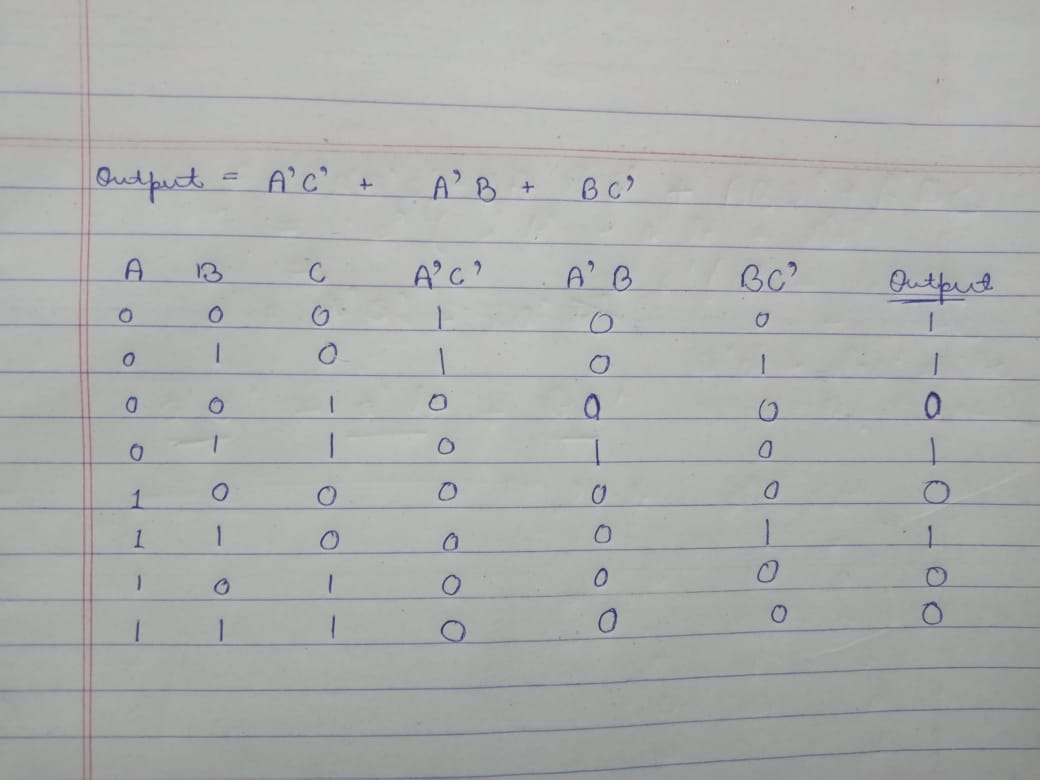 Output = A'C' + A'B + BC'
A B C A'C' A'B BC' Output
0 0 0 1 0 0 1
0 1 0 1 0 1 1
0 0 1 0 0 0 0
0 1 1 0 1 0 1
1 0 0 0 0 0 0
1 1 0 0 0 1 1
1 0 1 0 0 0 0
1 1 1 0 0 0 0